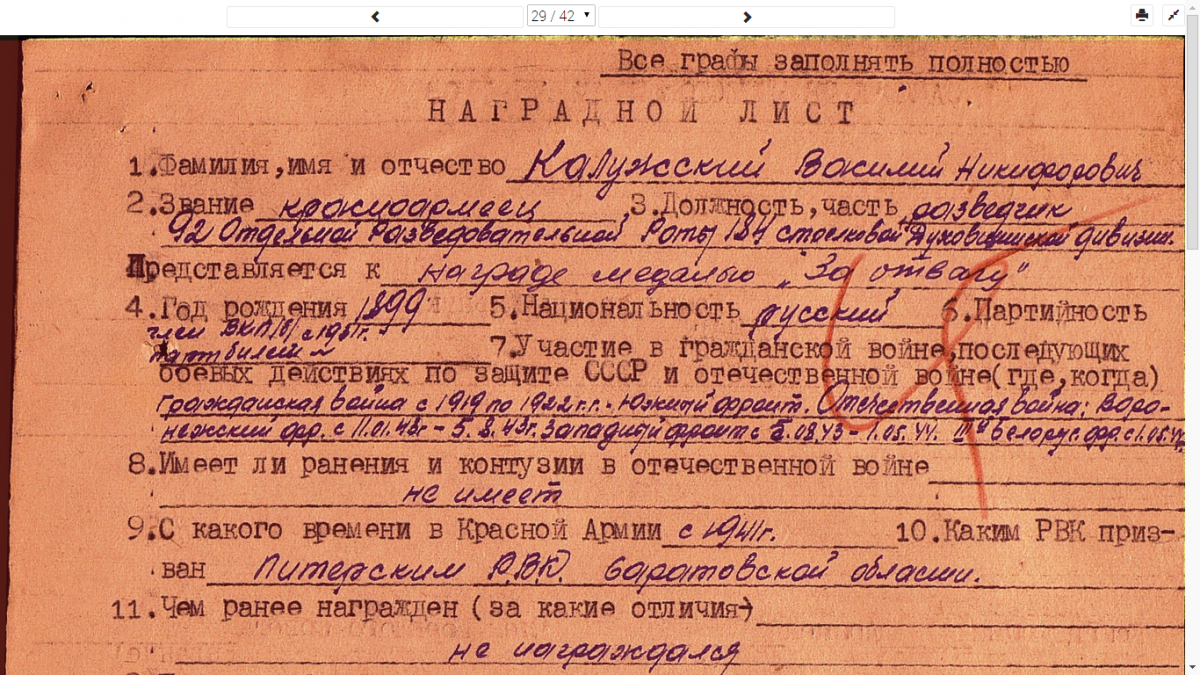 29 / 42
Все графы заполнять полностью
НАГРАДНОЙ ЛИСТ
1.Фамилия,имя и отчество Калужский Василий Никифорович
2.Звание красноармеец 3.Должность,часть разведчик
92 Отдельной Разведовательной Роты 184 стрелковой Духовщинской дивизии.
Представляется к награде медалью „За отвагу"
4.Год рождения 1899 5.Национальность русский 6.Партийность
член ВКП/б/ с
партбилет № 7.Участие в гражданской войне,последующих
боевых действиях по защите СССР и отечественной войне(где,когда)
Гражданская война с 1919 по 1922 г.г.- Южный фронт. Отечественная война: Воро-
нежский фр. с 11.01.43г - 5.8.43г. Западный фронт с 5.08.43 - 1.05.44. IIIй Белорус. фр. с 1.05.44
8.Имеет ли ранения и контузии в отечественной войне
не имеет
9.С какого времени в Красной Армии с 1941г. 10.Каким РВК приз-
ван Питерским РВК. Саратовской области.
11.Чем ранее награжден (за какие отличия)
не награждался